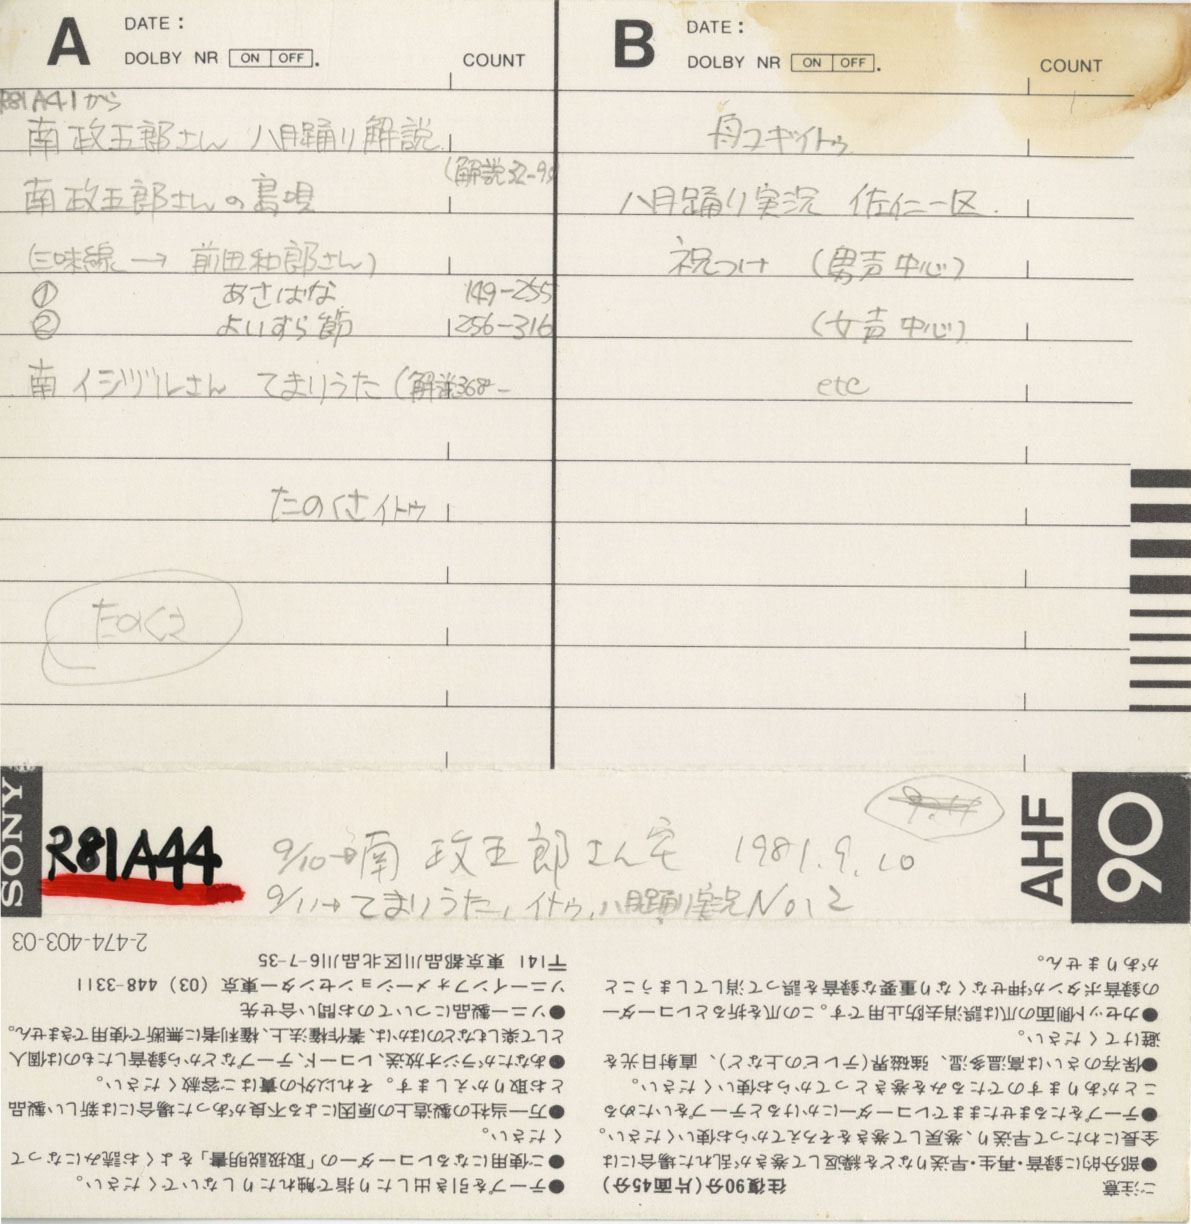 A DATE:
DOLBY NR ON OFF. COUNT
R81A41から
南政五郎さん 八月踊り解説
(解説32-9
南政五郎さんの島唄
(三味線→ 前田和郎さん)
① あさばな 149-255
② よいすら節 256-316
南イジヅルさん てまりうた (解説368-
たのくさイトゥ
たのくさ
B DATE:
DOLBY NR ON OFF. COUNT
舟ユギイトゥ
八月踊り実況 佐仁一区.
祝つけ (男声中心)
(女声中心)
etc
SONY
R81A44
9/10→南 政五郎さん宅 1981.9.10
9/11→てまりうた, イトゥ, 八月踊り実況No.2
AHF
90
2-474-403-03
ご注意 往復90分(片面45分)
●部分的に録音・再生・早送りなどを繰返して巻きが乱れた場合には
全長にわたって早送り、巻戻して巻きをそろえてからお使いください。
●テープをたるませたままでレコーダーにかけるとテープをいためる
ことがありますのでたるみを巻きとってからお使いください。
●保存のさいは高温多湿、強磁界(テレビの上など)、直射日光を
避けてください。
●カセット側面の爪は誤消去防止用です。この爪を折るとレコーダー
の録音ボタンが押せなくなり重要な録音を誤って消してしまうこと
がありません。
●テープを引き出したり指で触れたりしないでください。
●ご使用になるレコーダーの「取扱説明書」をよくお読みになって
ください。
●万一当社の製造上の原因による不良があった場合には新しい製品
とお取りかえします。それ以外の責はご容赦ください。
●あなたがラジオ放送、レコード、テープなどから録音したものは個人
として楽しむなどのほかは、著作権法上、権利者に無断で使用できません。
●ソニー製品についてのお問い合せ先
ソニーインフォメーションセンター東京 (03) 448-3311
〒141 東京都品川区北品川6-7-35